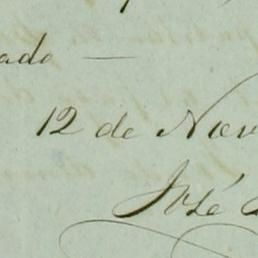 ado —
12 de Nov
José